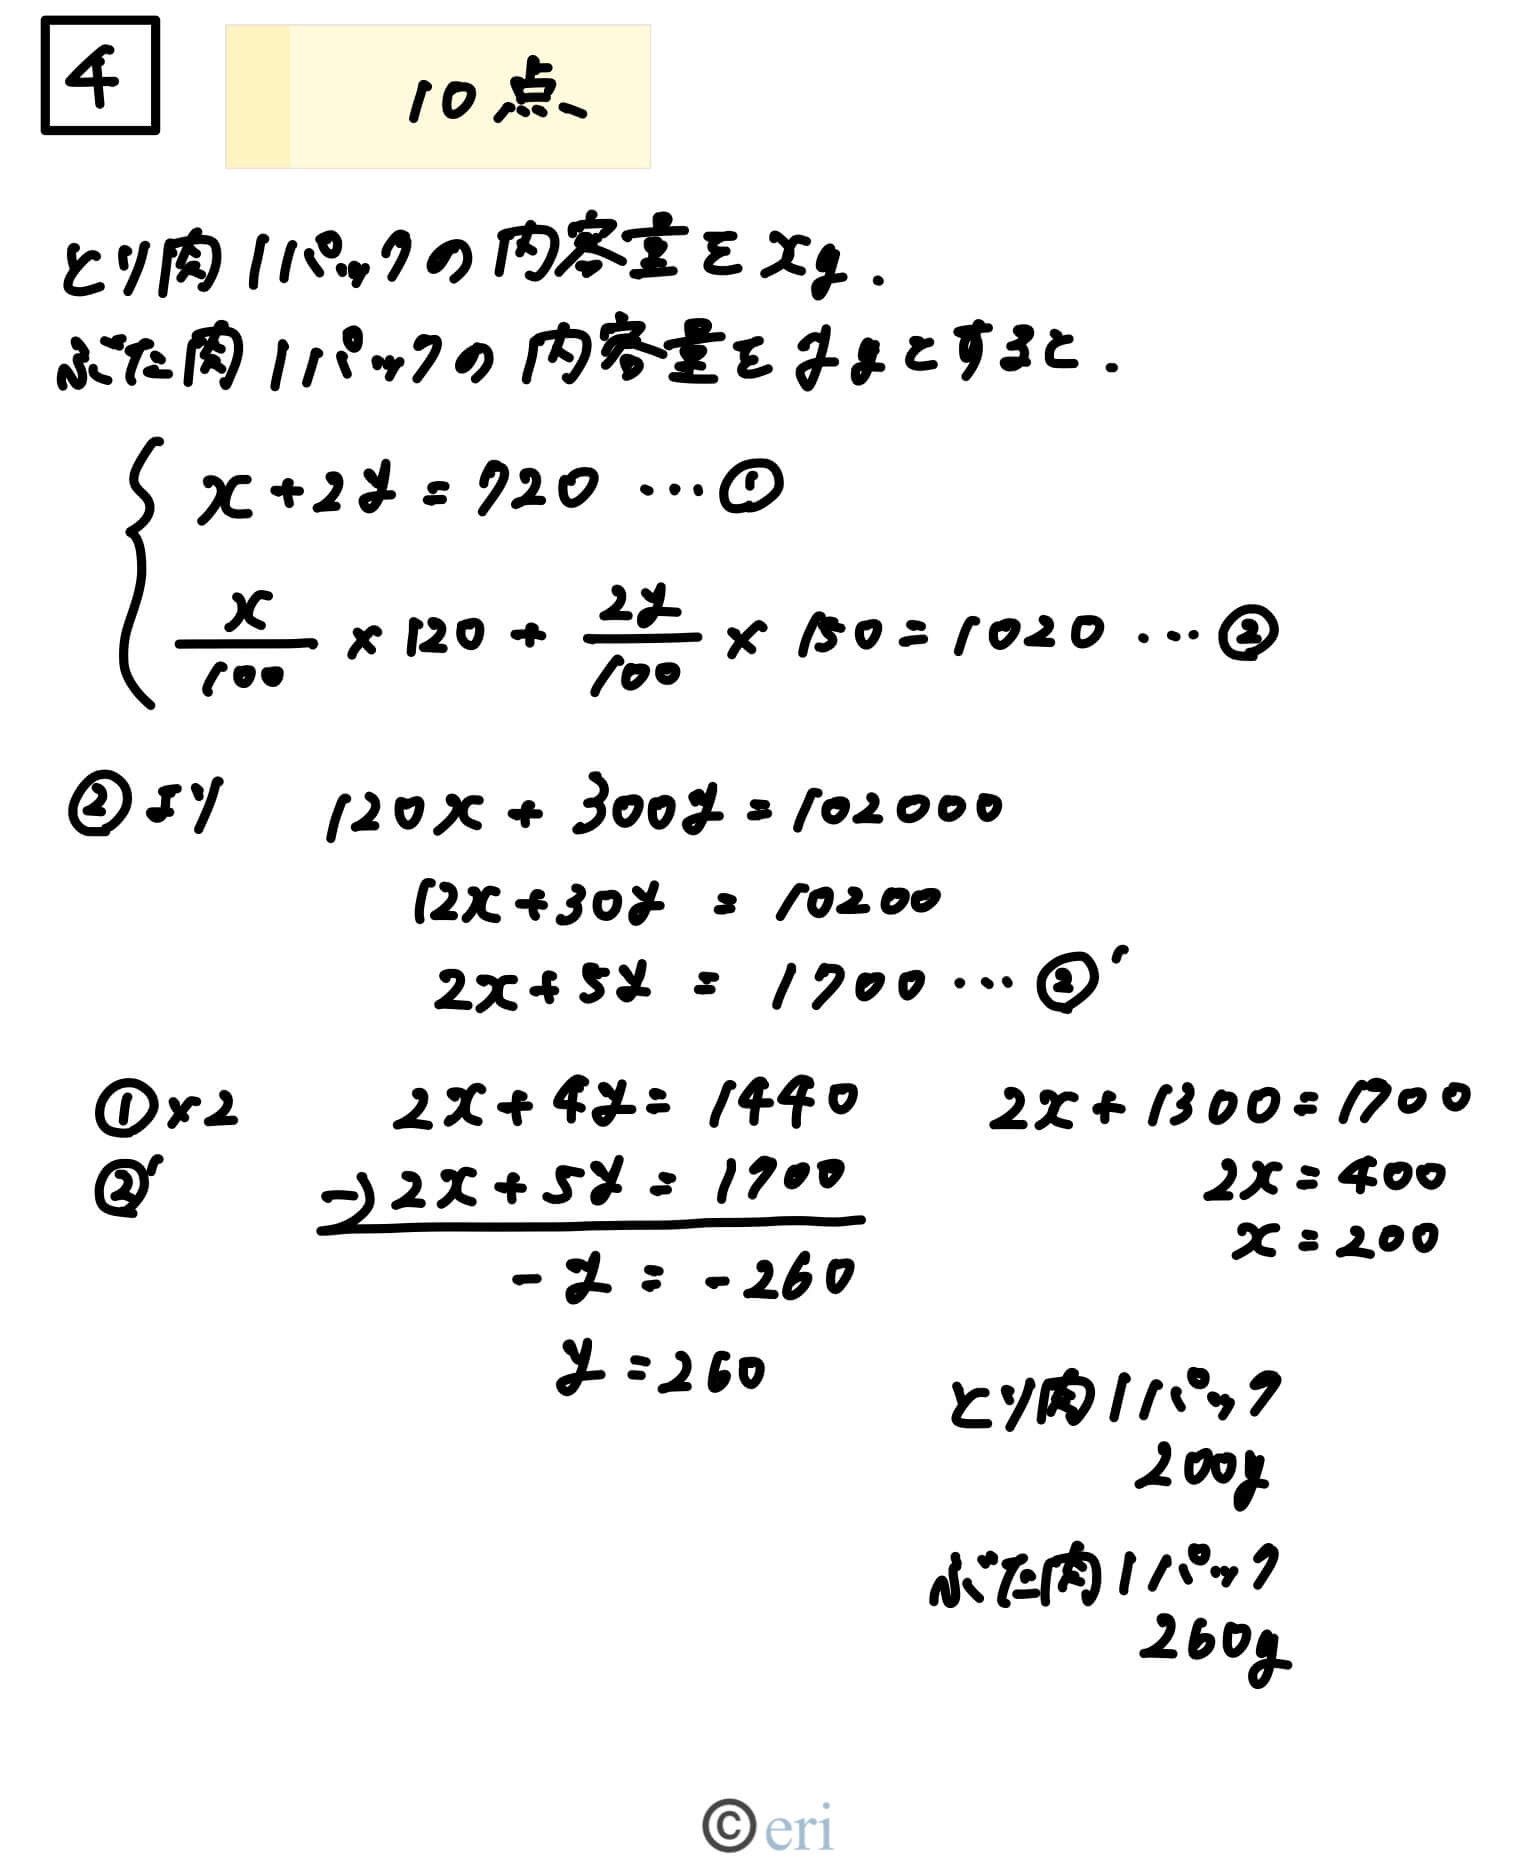 4
10点
とり肉1パックの内容量をxg.
ぶた肉1パックの内容量をygとすると.
x+2y=720 …①
x/100 × 120 + 2y/100 × 150 = 1020 …②
②より 120x + 300y = 102000
12x+30y = 10200
2x+5y = 1700 …②'
①×2 2x+4y=1440
②' -) 2x+5y=1700
-y = -260
y = 260
2x+1300=1700
2x=400
x=200
とり肉1パック
200g
ぶた肉1パック
260g
©eri